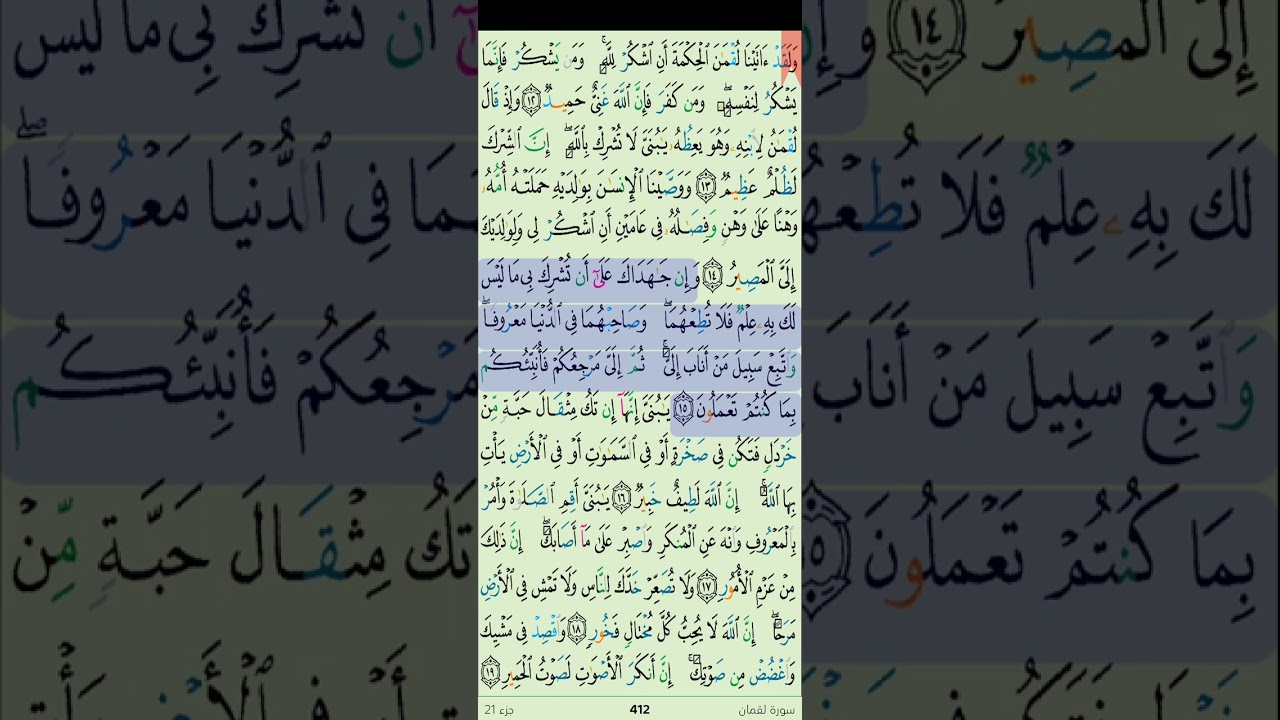 وَلَقَدْ ءَاتَيْنَا لُقْمَٰنَ ٱلْحِكْمَةَ أَنِ ٱشْكُرْ لِلَّهِ ۚ وَمَن يَشْكُرْ فَإِنَّمَا
يَشْكُرُ لِنَفْسِهِۦ ۖ وَمَن كَفَرَ فَإِنَّ ٱللَّهَ غَنِىٌّ حَمِيدٌ ١٢ وَإِذْ قَالَ
لُقْمَٰنُ لِٱبْنِهِۦ وَهُوَ يَعِظُهُۥ يَٰبُنَىَّ لَا تُشْرِكْ بِٱللَّهِ ۖ إِنَّ ٱلشِّرْكَ
لَظُلْمٌ عَظِيمٌ ١٣ وَوَصَّيْنَا ٱلْإِنسَٰنَ بِوَٰلِدَيْهِ حَمَلَتْهُ أُمُّهُۥ
وَهْنًا عَلَىٰ وَهْنٍ وَفِصَٰلُهُۥ فِى عَامَيْنِ أَنِ ٱشْكُرْ لِى وَلِوَٰلِدَيْكَ
إِلَىَّ ٱلْمَصِيرُ ١٤ وَإِن جَٰهَدَاكَ عَلَىٰٓ أَن تُشْرِكَ بِى مَا لَيْسَ
لَكَ بِهِۦ عِلْمٌ فَلَا تُطِعْهُمَا ۖ وَصَاحِبْهُمَا فِى ٱلدُّنْيَا مَعْرُوفًا ۖ
وَٱتَّبِعْ سَبِيلَ مَنْ أَنَابَ إِلَىَّ ۚ ثُمَّ إِلَىَّ مَرْجِعُكُمْ فَأُنَبِّئُكُم
بِمَا كُنتُمْ تَعْمَلُونَ ١٥ يَٰبُنَىَّ إِنَّهَآ إِن تَكُ مِثْقَالَ حَبَّةٍ مِّنْ
خَرْدَلٍ فَتَكُن فِى صَخْرَةٍ أَوْ فِى ٱلسَّمَٰوَٰتِ أَوْ فِى ٱلْأَرْضِ يَأْتِ
بِهَا ٱللَّهُ ۚ إِنَّ ٱللَّهَ لَطِيفٌ خَبِيرٌ ١٦ يَٰبُنَىَّ أَقِمِ ٱلصَّلَوٰةَ وَأْمُرْ
بِٱلْمَعْرُوفِ وَٱنْهَ عَنِ ٱلْمُنكَرِ وَٱصْبِرْ عَلَىٰ مَآ أَصَابَكَ ۖ إِنَّ ذَٰلِكَ
مِنْ عَزْمِ ٱلْأُمُورِ ١٧ وَلَا تُصَعِّرْ خَدَّكَ لِلنَّاسِ وَلَا تَمْشِ فِى ٱلْأَرْضِ
مَرَحًا ۖ إِنَّ ٱللَّهَ لَا يُحِبُّ كُلَّ مُخْتَالٍ فَخُورٍ ١٨ وَٱقْصِدْ فِى مَشْيِكَ
وَٱغْضُضْ مِن صَوْتِكَ ۚ إِنَّ أَنكَرَ ٱلْأَصْوَٰتِ لَصَوْتُ ٱلْحَمِيرِ ١٩
سورة لقمان 412 جزء 21